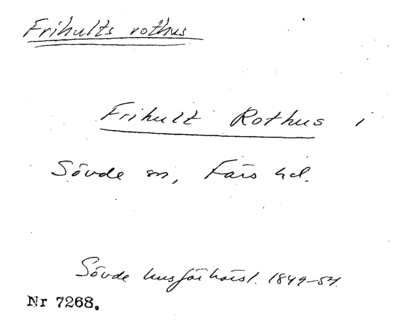 Frihults rothus
Frihult Rothus i
Sövde sn, Färs hd.
Sövde husförhörsl. 1849-54.
Nr 7268.